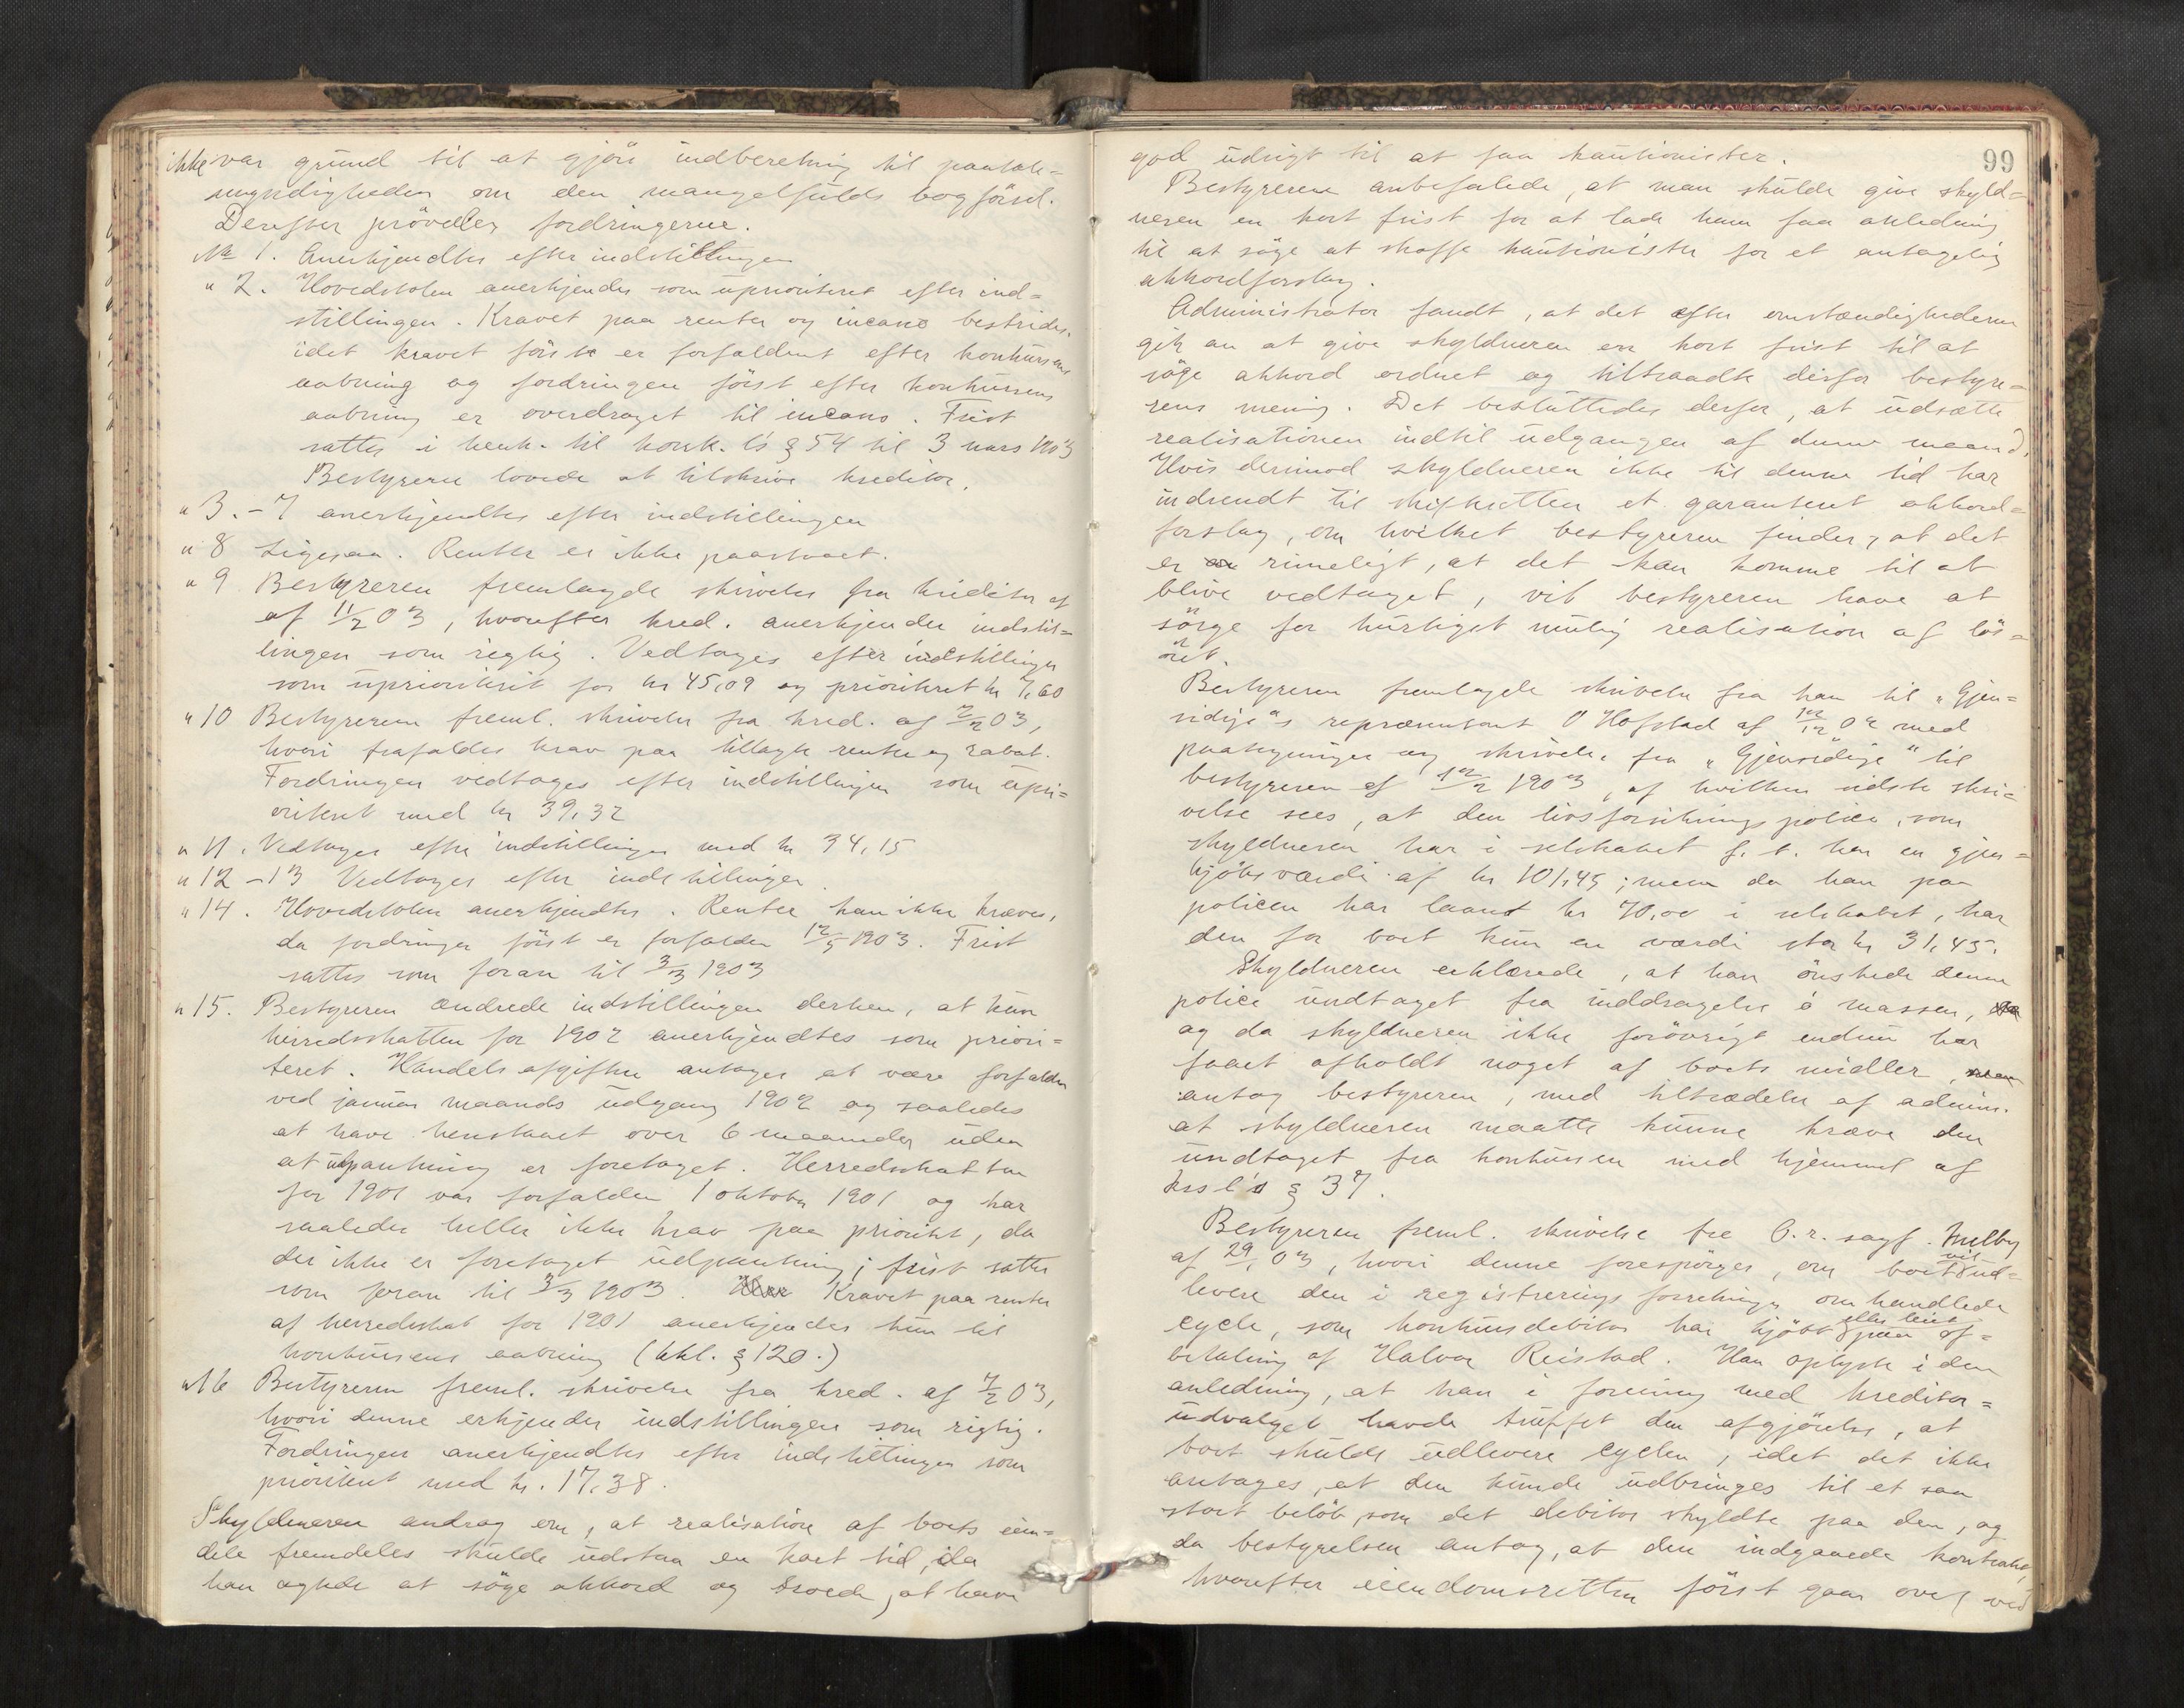 ikke var grund til at gjöre indberetning til paatale=
myndigheden om den mangelfulde bogførsel.
Derefter prövedes fordringerne.
No 1. Anerkjendtes efter indstillingen
" 2. Hovedstolen anerkjendes som uprioriteret efter ind=
stillingen. Kravet paa renter og incasso bestrides,
idet kravet först er forfaldent efter konkursens
aabning og fordringen först efter konkursens
aabning er overdraget til incasso. Frist
sattes i henh. til konk. l's § 54 til 3 mars 1903
Bestyreren lovede at tilskrive kreditor.
" 3.-7 anerkjendtes efter indstillingen
" 8 Ligesaa. Renter er ikke paastaaet.
" 9 Bestyreren fremlagde skrivelse fra kreditor af
af 11/2 03, hvorefter kred. anerkjender indstil=
lingen som rigtig. Vedtages efter indstillingen
som uprioriteret for kr 45,09 og prioriteret kr 7,60
" 10 Bestyreren freml. skrivelse fra kred. af 7/2 03,
hvori frafaldes krav paa tillagte renter og rabat.
Fordringen vedtages efter indstillingen som upri=
oriteret med kr 39,32
" 11. Vedtages efter indstillingen med kr 34,15
" 12-13 Vedtages efter indstillingen.
" 14. Hovedstolen anerkjendtes. Renter kan ikke kræves,
da fordringen först er forfalden 12/5 1903. Frist
sattes som foran til 3/3 1903
" 15. Bestyreren ændrede indstillingen derhen, at kun
herredsskatten for 1902 anerkjendtes som priori=
teret. Handelsafgiften antages at være forfalden
ved januar maaneds udgang 1902 og saaledes
at have henstaaet over 6 maaneder uden
at udpantning er foretaget. Herredsskatten
for 1901 var forfalden 1 oktober 1901 og har
saaledes heller ikke krav paa prioritet, da
der ikke er foretaget udpantning; frist sattes
som foran til 3/3 1903. Kravet paa renter
af herredsskat for 1901 anerkjendes kun til
konkursens aabning (kkl. § 120.)
" 16 Bestyreren freml. skrivelse fra kred. af 7/2 03,
hvori denne erkjender indstillingen som rigtig.
Fordringen anerkjendtes efter indstillingen som
prioriteret med kr. 17,38.
Skyldneren androg om, at realisation af boets eien=
dele fremdeles skulde udstaa en kort tid, da
han agtede at söge akkord og troede, at have
99
god udsigt til at faa kautionister.
Bestyreren anbefalede, at man skulde give skyld=
neren en kort frist for at lade ham faa anledning
til at söge at skaffe kautionister for et antagelig
akkordforslag.
Administrator fandt, at det efter omstændighederne
gik an at give skyldneren en kort frist til at
söge akkord ordnet og tiltraadte derfor bestyre=
rens mening. Det besluttedes derfor, at udsætte
realisationen indtil udgangen af denne maaned.
Hvis derimod skyldneren ikke til denne tid har
indsendt til skifteretten et garanteret akkord=
forslag, om hvilket bestyreren finder, at det
er rimeligt, at det kan komme til at
blive vedtaget, vil bestyreren have at
sörge for hurtigst mulig realisation af lös=
öret.
Bestyreren fremlagde skrivelse fra ham til "Gjen=
sidige"s repræsentant O Hofstad af 12/12 02 med
paategninger og skrivelse fra "Gjensidige" til
bestyreren af 12/2 1903, af hvilken sidste skri=
velse sees, at den livsforsikringspolice, som
skyldneren har i selskabet f. t. har en gjen=
kjöbsværdi af kr 101,45; men da han paa
policen har laant kr 70,00 i selskabet, har
den for boet kun en værdi stor kr 31,45.
Skyldneren erklærede, at han önskede denne
police undtaget fra inddragelse i massen,
og da skyldneren ikke forövrigt endnu har
faaet afholdt noget af boets midler,
antog bestyreren, med tiltrædelse af admin.
at skyldneren maatte kunne kræve den
undtaget fra konkursen med hjemmel af
kksl's § 37.
Bestyreren freml. skrivelse fra O.r. sagf. Melby
af 29/1 03, hvori denne forespörges, om boet vil ud=
levere den i registreringsforretningen omhandlede
cycle, som konkursdebitor har kjöbt eller leiet paa af=
betaling af Halvor Reistad. Han oplyste i den
anledning, at han i forening med kreditor=
udvalget havde truffet den afgjörelse, at
boet skulde udlevere cyclen, idet det ikke
antages, at den kunde udbringes til et saa
stort belöb, som det debitor skyldte paa den, og
da bestyrelsen antog, at den indgaaede kontrakt,
hvorefter eiendomsretten först gaar over ved